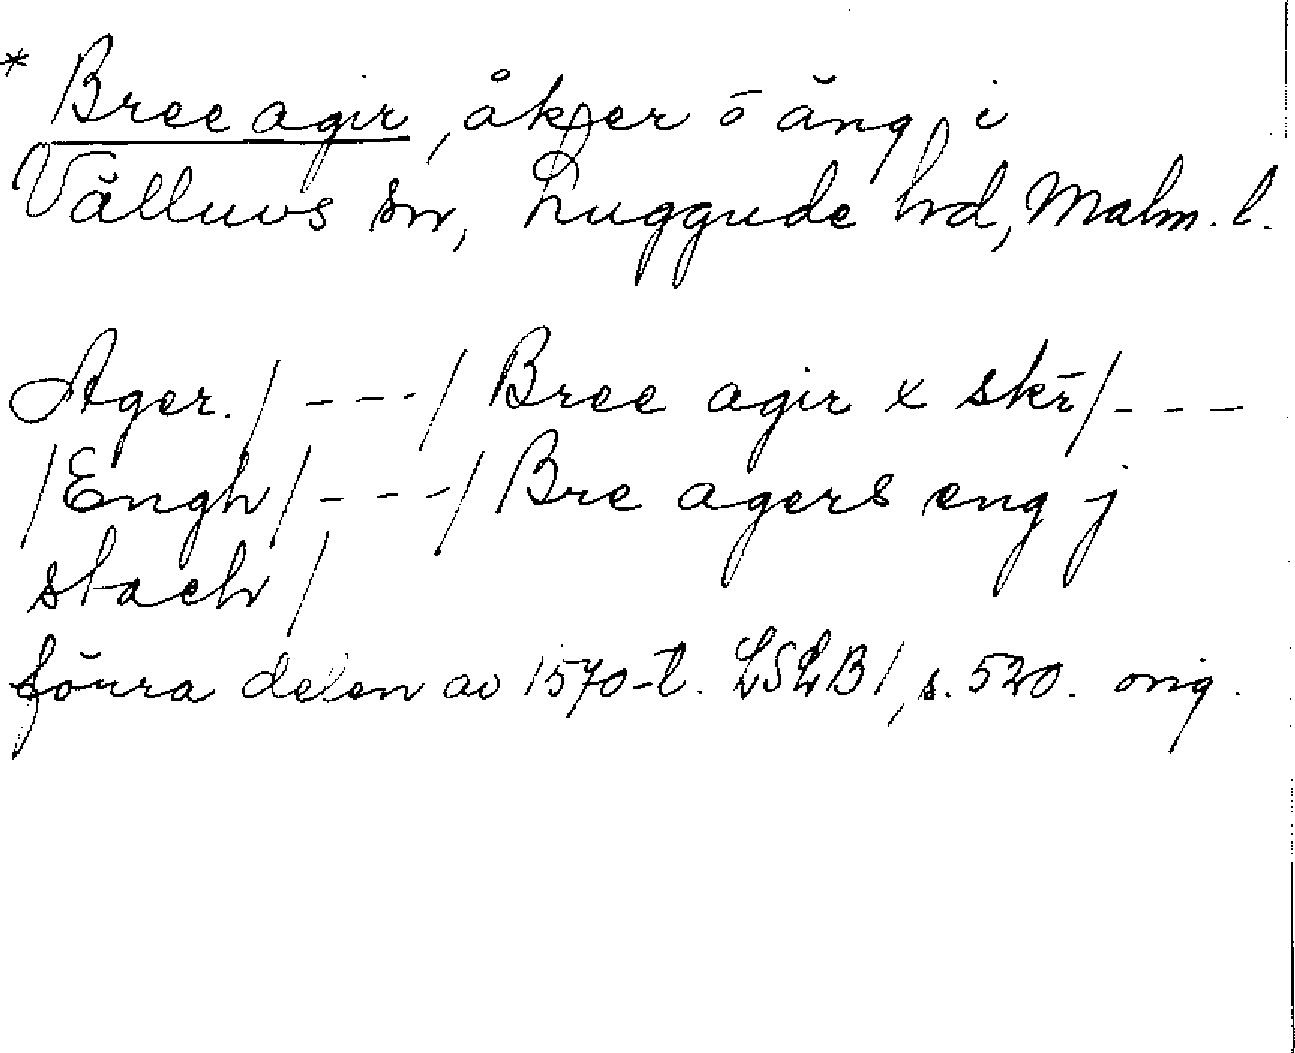 * Bree agir, åker o äng i
Välluvs sn, Luggude hd, Malm. l.
Ager. / - - - / Bree agir x skr̄ / - - -
/ Engh / - - - / Bre agers eng j
stach /
förra delen av 1570-t. LSLB 1, s. 520. orig.